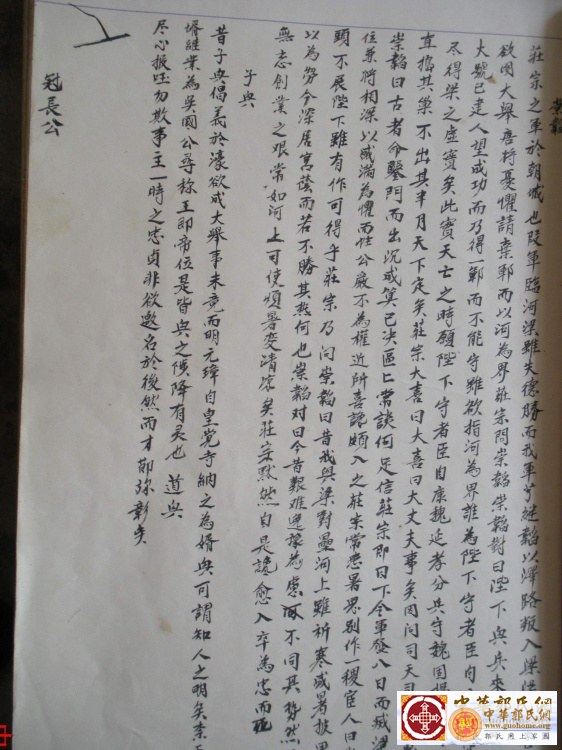 崇韜
莊宗之軍於朝城也段軍臨河梁雖失德勝而我軍
欲圖大舉吾將憂懼請棄鄆而以河為界莊宗問崇韜崇韜對曰陛下興兵來
大號已建人望成功而乃得一鄆而不能守雖欲指河為界誰為陛下守者臣自
尽得梁之虛實矣此實天亡之時願陛下守者臣自康魏延孝分兵守魏固
直搗其巢不出其半月天下定矣莊宗大喜曰大喜曰大丈夫事矣因问司天司
崇韜曰古者命鑿門而出况成筭已决區匕常談何足信莊宗即日下令軍發八日而滅
位兼將相深以盛滿為懼而性公嚴不為權近所喜讒頗入之莊宗常患暑思别作一樓宦人曰
頭不展陛下雖有作可得乎莊宗乃问崇韜曰昔我與梁對壘河上雖祈寒盛暑披
以為勞今深居宮蔭而若不勝其热何也崇韜对曰今昔艱难逸豫為慮不同其势然
無忘創業之艰常如河上可使煩暑变清凉矣莊宗默然自是讒愈入卒為忠而死
子興
昔子興倡義於濠欲成大舉事未竟而明元璋自皇觉寺納之為婿興可謂知人之明矣
婿継業為吳國公尋称王即帝位是皆興之陟降有灵也 道興
尽心报国勿欺事主一時之忠貞非欲邀名於後然而才郎弥彰矣
冠長公
中華郭氏網
中華郭氏網
www.guohome.org
郭氏網上家園